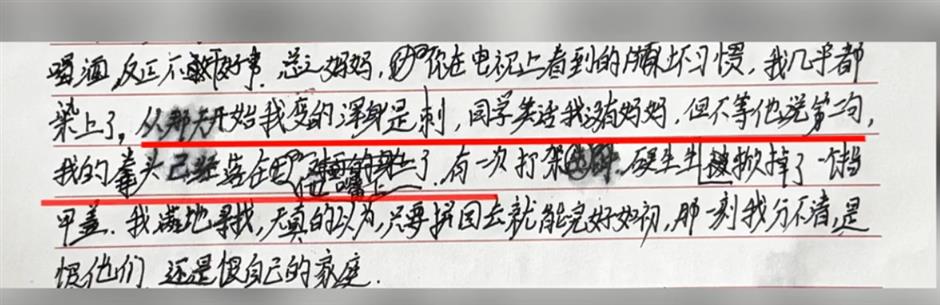 喝酒,反正不做好事.总之妈妈,但你在电视上看到的所有坏习惯,我几乎都
染上了,从那天开始我变的浑身是刺,同学笑话我没有妈妈,但不等他说第二句,
我的拳头已经落在他嘴上了.有一次打架 硬生生被掀掉了一个指
甲盖.我满地寻找,天真的以为,只要拼回去就能完好如初,那一刻我分不清,是
恨他们 还是恨自己的家庭.